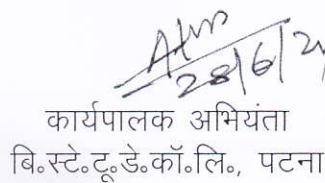 28/6/2
कार्यपालक अभियंता
बि॰स्टे॰टू॰डे॰कॉ॰लि॰, पटना